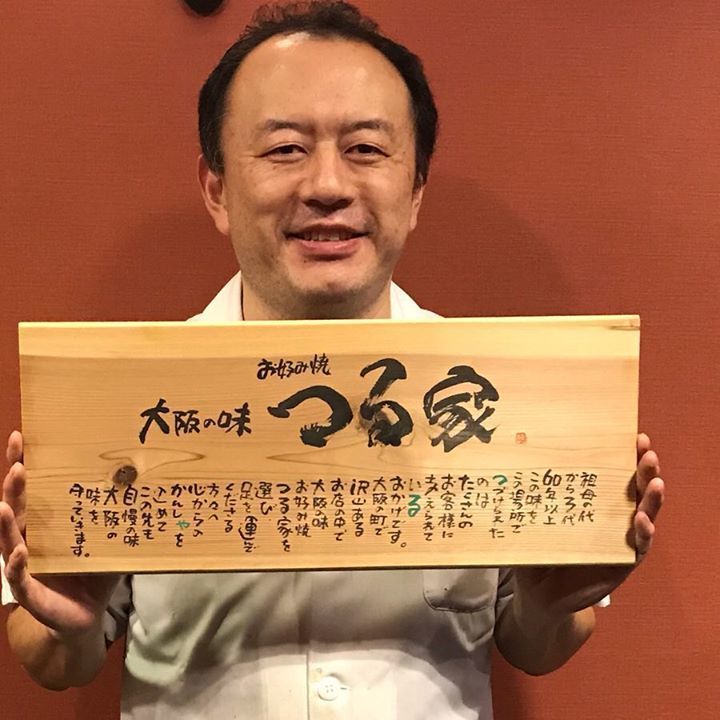 お好み焼
大阪の味 つる家
祖母の代
から3代
60年以上
この味を
この場所で
つづけられた
のは
たくさんの
お客様に
支えられて
いる
おかげです。
大阪の町で
沢山ある
お店の中で
大阪の味
お好み焼
つる家を
選び
足を運んで
くださる
方々へ
心からの
かんしゃを
込めて
この先も
自慢の味
大阪の
味を
守っていきます。